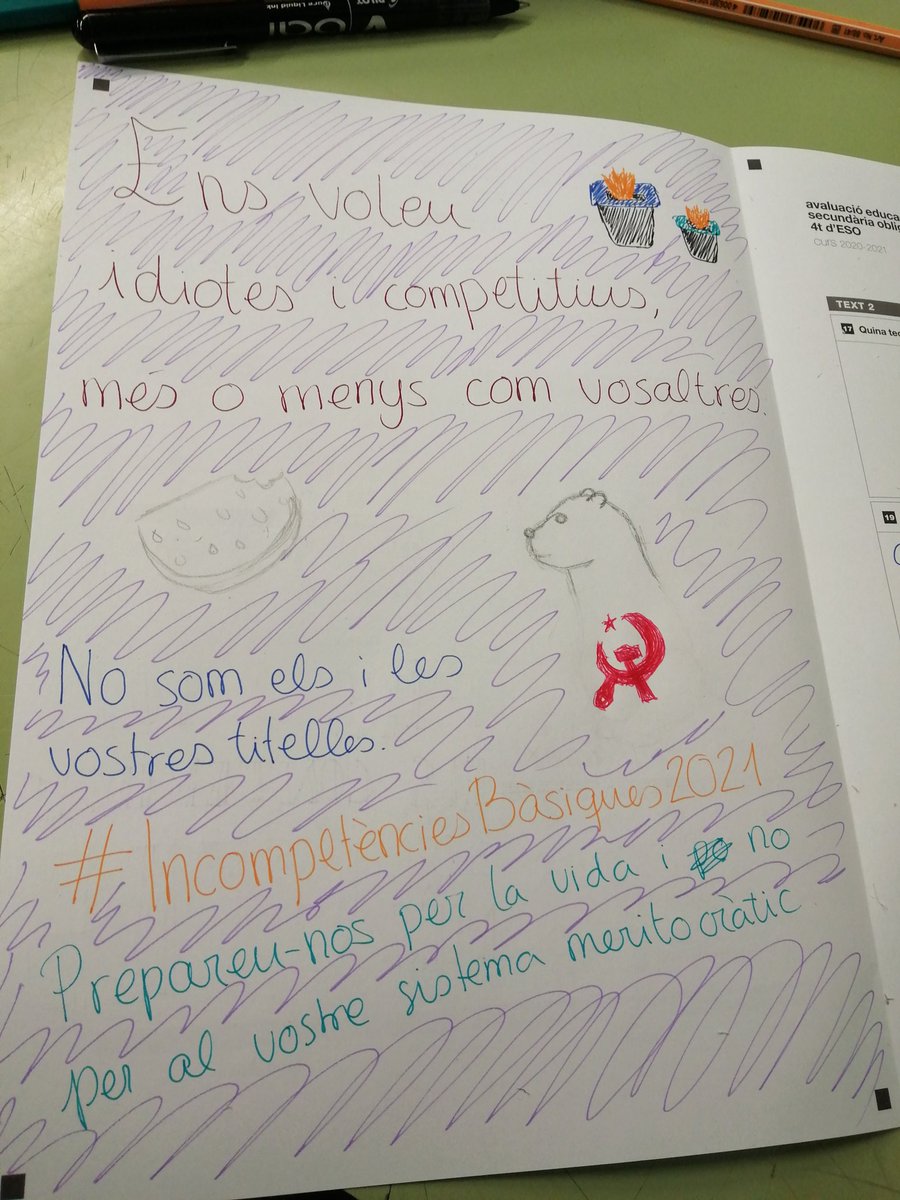 Ens voleu
idiotes i competitius,
més o menys com vosaltres.
No som els i les
vostres titelles.
#IncompetènciesBàsiques2021
Prepareu-nos per la vida i no
per al vostre sistema meritocràtic
avaluació educa
secundària oblig
4t d'ESO
curs 2020-2021
TEXT 2
17 Quina
19